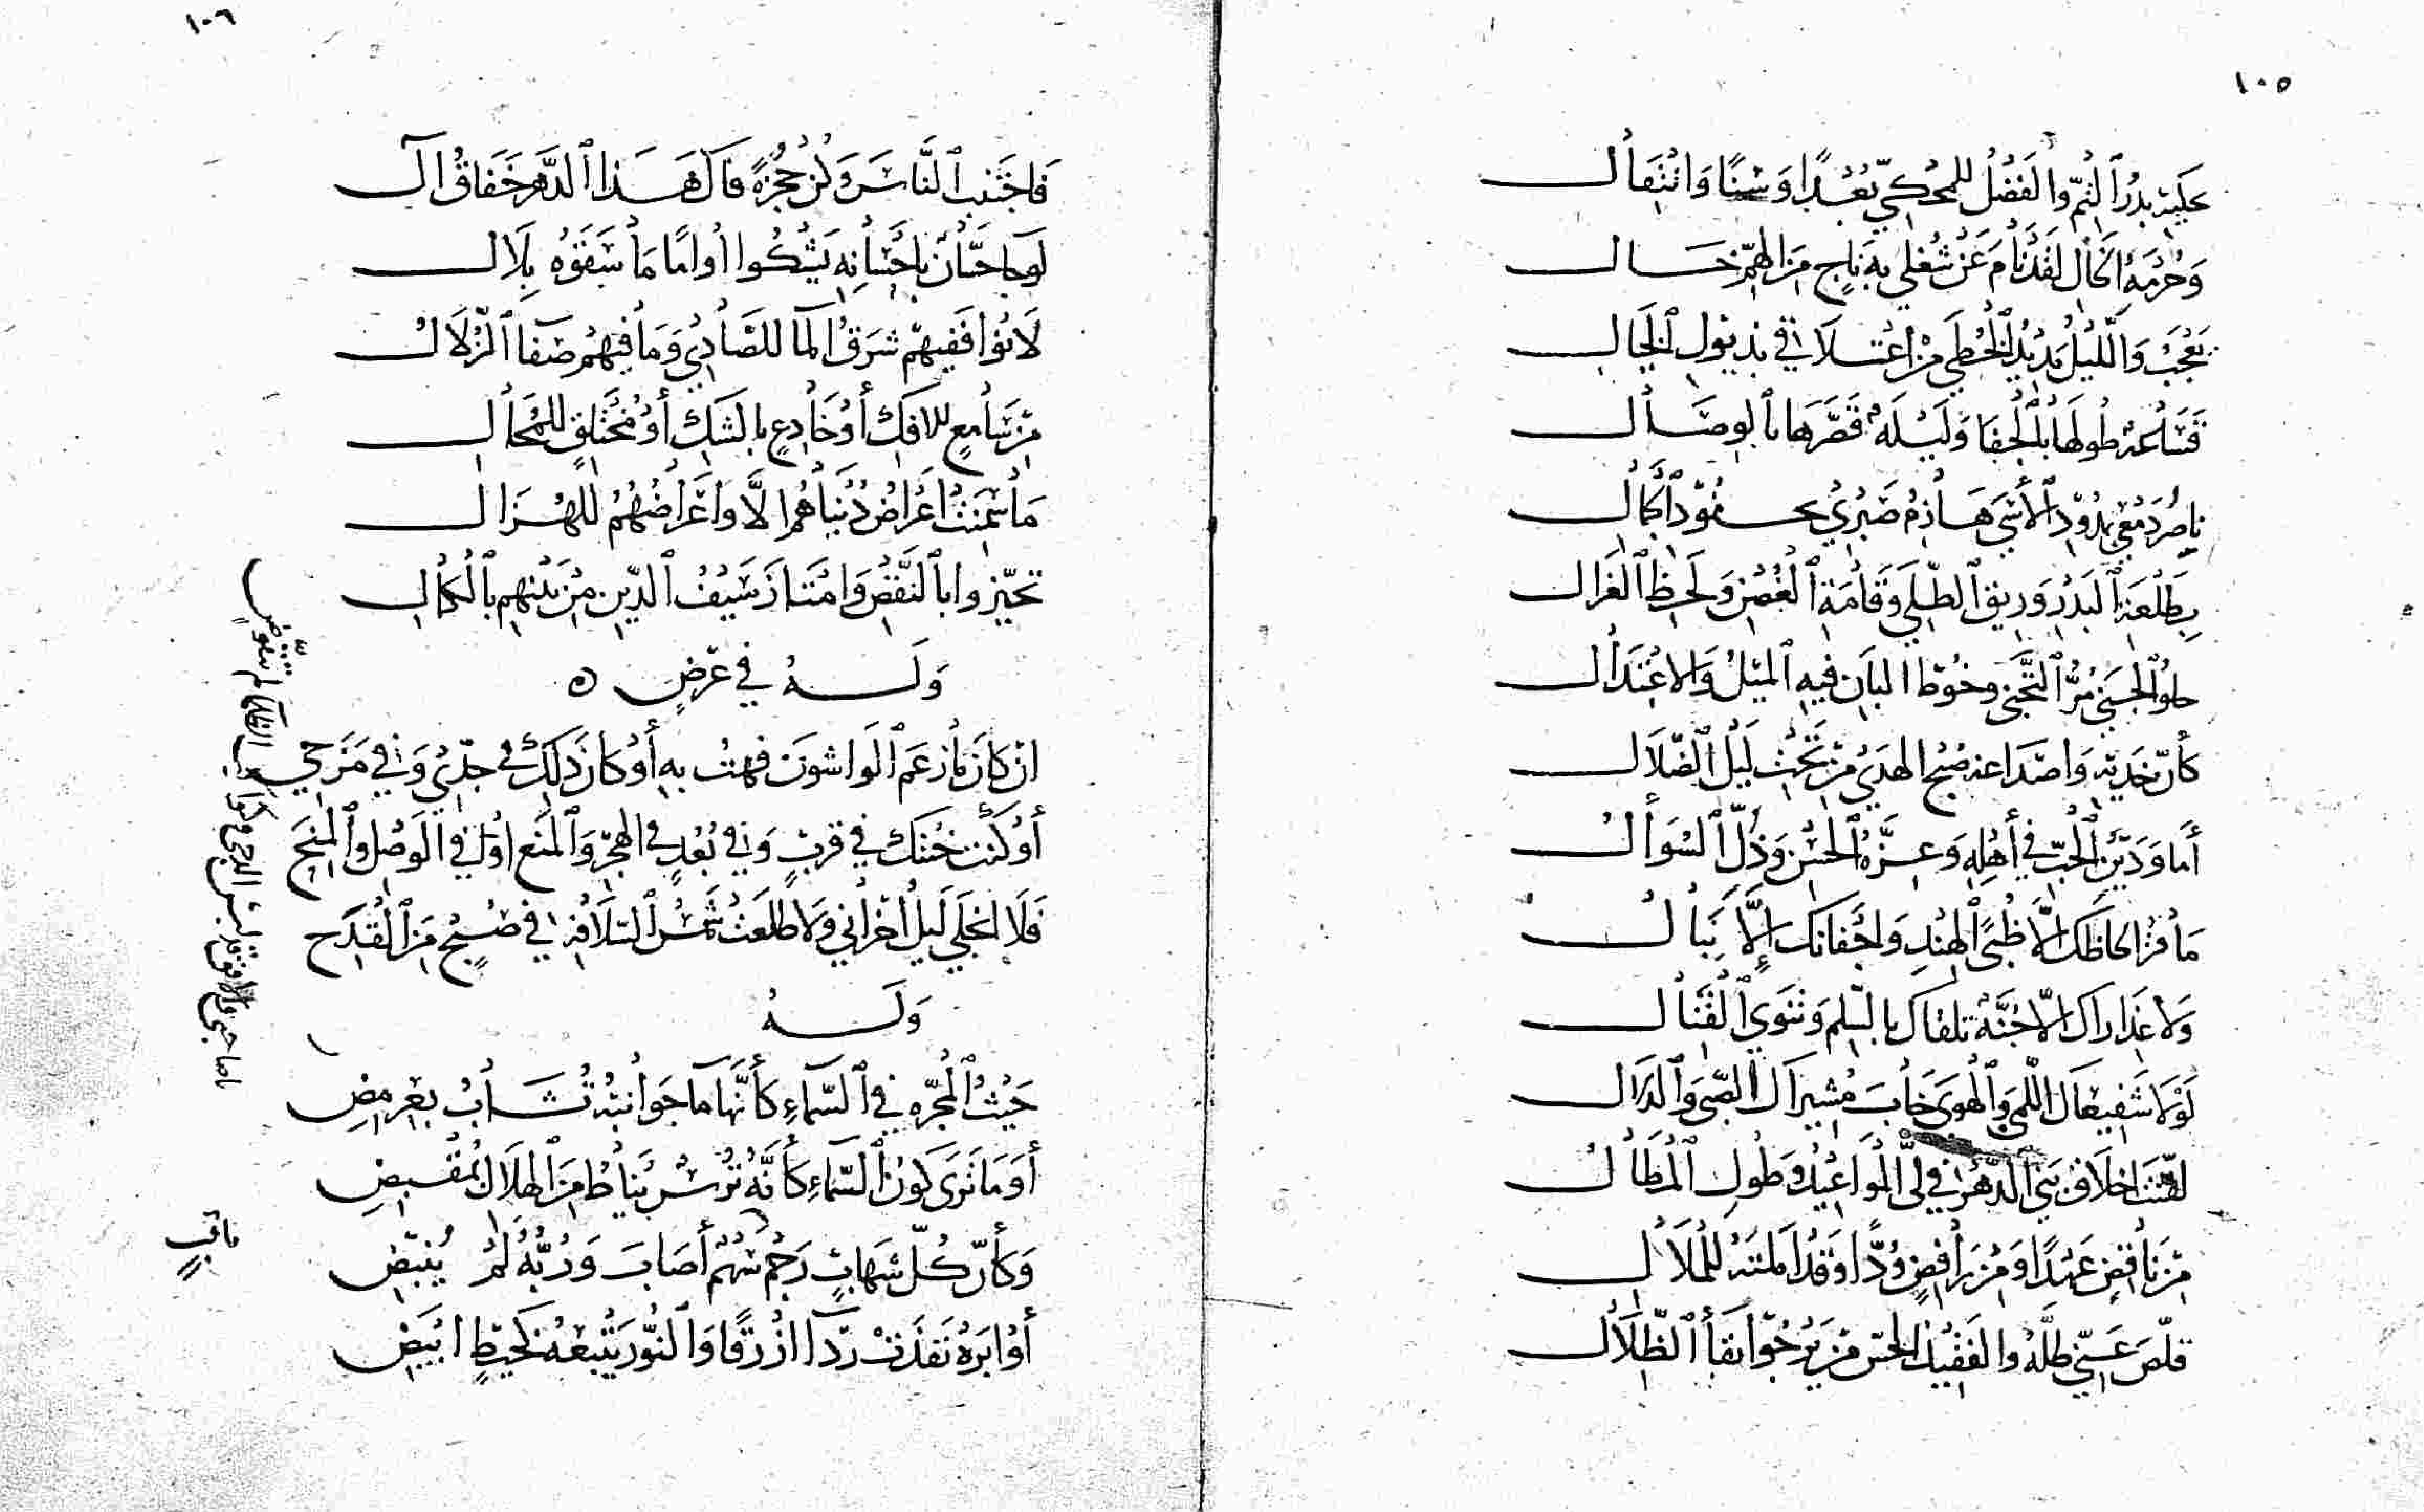 ١٠٥
عليه بدر التم والفضل للمحكي بعدا وسنا وانتقال
وحرمة الخال لقد نام عن شغلي به ناج من الهم خال
يعجب والليل مديد الخطى من اعتلاقي بذيول الخيال
فساعة طولها بالجفا وليلة قصرها بالوصال
ناصر دمعي بدود الأسى هازم صبري بحسود الكمال
بطلعة البدر وريق الطلى وقامة الغصن ولحظ الغزال
حلو الجنى مر التجني وخوط البان فيه الميل والاعتدال
كأن خديه واصداغه صبح الهدى من تحت ليل الضلال
أما ودين الحب في أهله وعزة الحسن وذل السوأل
ما فتر الحاظك الا ظبى الهند واجفانك إلا نبال
ولا عذاراك الا جنة تلقاك بالسلم وتنوي القتال
لولا شفيعاك اللمى والهوى خاب مشيراك الصبى والدلال
لقنت اخلاق بني الدهر في لي المواعيد وطول المطال
من ناقض عهدا ومن رافض ودا وقد املته للملال
قلص عني ظله والفقيد الحس من يرجو بقأ الظلال
١٠٦
فاجتنب الناس وكن حجزة فآل هذا الدهر خفاق آل
لو جا حسان باحسانه يشكوا أواما ما سقوه بلال
لا تؤا ففيهم شرق الما للصادي وما فيهم صفا الزلال
من سامع للافك أو خادع بالشك أو مختلق للمحال
ما سمنت اعراض دنياهم الا واعراضهم للهزال
تحيزوا بالنقص وامتاز سيف الدين من بينهم بالكمال
وله في غرض ه
ان كان ما زعم الواشون فهت به أو كان ذلك في جدي وفي مزحي
أو كنت خنتك في قرب وفي بعد في الهجر والمنع أو في الوصل والمنح
فلا انجلى ليل احزاني ولا طلعت شمس السلافة في صبح من القدح
وله
حيث المجره في السماء كأنها مآ جوانبه تشاب بعرمض
أو ما ترى لون السماء كأنه ترس يناط من الهلال بمقبض
وكأن كل شهاب رجم سهم أصاب وربه لم ينبض
أو ابرة نفذت ردآ ازرقا والنور يتبعه كخيط ابيض